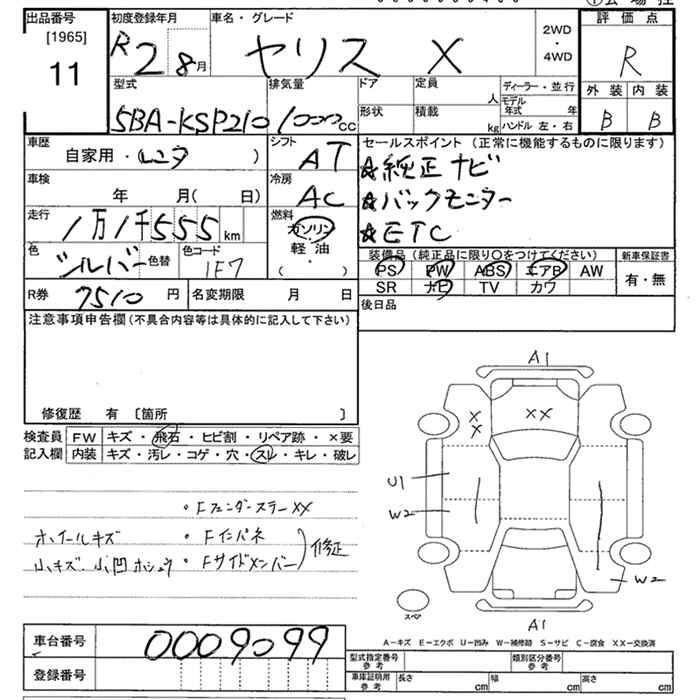 ① 会場控
出品番号 初度登録年月 車名・グレード 2WD・4WD 評価点
[1965] 11 R2 8月 ヤリス X R
型式 排気量 ドア 定員 人 ディーラー・並行 外装 内装
5BA-KSP210 1000cc 形状 積載 kg モデル年式 年 ハンドル 左・右 B B
車歴 自家用・レンタ ) シフト AT セールスポイント (正常に機能するものに限ります)
☆純正ナビ
車検 年 月( 日) 冷房 AC ☆バックモニター
走行 1万1千555km 燃料 ガソリン 軽油 ( ・ ) ☆ETC
色 シルバー 色替 色コード 1F7 装備品 (純正品に限り○をつけてください) 新車保証書
PS PW ABS エアB AW 有・無
R券 7510 円 名変期限 月 日 SR ナビ TV カワ
注意事項申告欄(不具合内容等は具体的に記入して下さい) 後日品
修復歴 有 〔箇所 〕
検査員 FW キズ・飛石・ヒビ割・リペア跡・×要
記入欄 内装 キズ・汚レ・コゲ・穴・スレ・キレ・破レ
・Fフェンダーステー XX
ホイールキズ ・Fインパネ
小キズ、小凹ホシュウ ・Fサイドメンバー )修正
A1
X X XX
U1
W2
W2
スペア
A1
A-キズ E-エクボ U-凹み W-補修跡 S-サビ C-腐食 XX-交換済
車台番号 0009099
型式指定番号 参考 類別区分番号 参考
登録番号 車庫証明用 参考 長さ cm 幅 cm 高さ cm